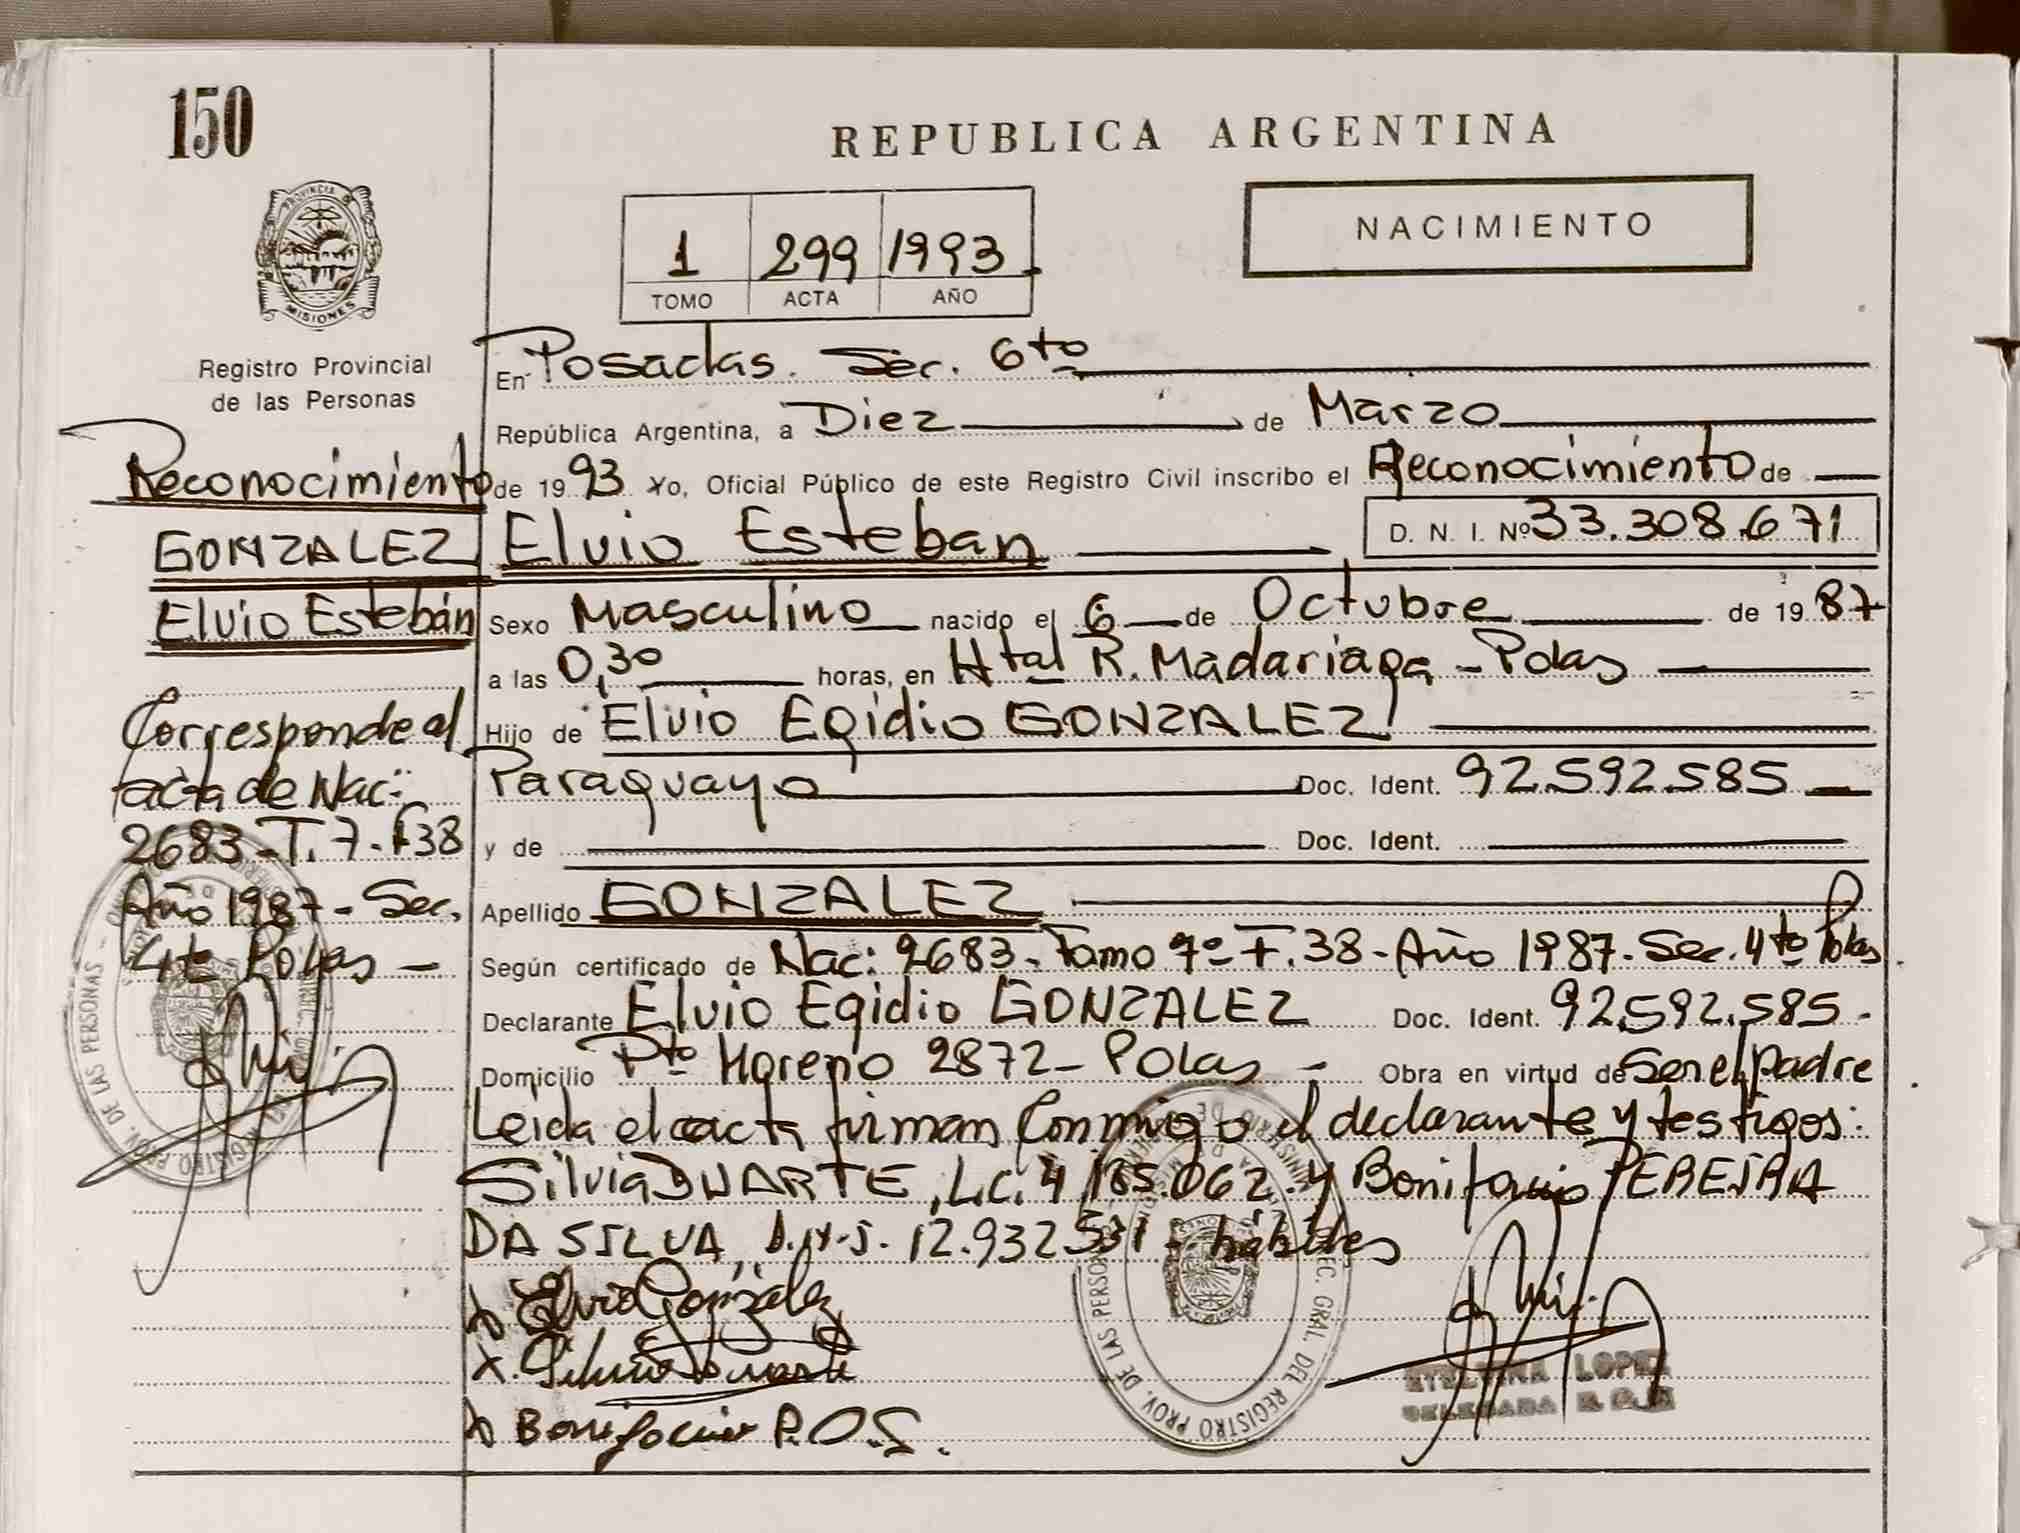 150
REPUBLICA ARGENTINA
NACIMIENTO
1 299 1993
TOMO ACTA AÑO
PROVINCIA DE
MISIONES
Registro Provincial
de las Personas
Reconocimiento
GONZALEZ
Elvio Estebán
Corresponde al
acta de Nac:
2683-T.7-F38
Año 1987-Sec.
4to Pdas -
En Posadas. Sec. 6to
República Argentina, a Diez de Marzo
de 1993 Yo, Oficial Público de este Registro Civil inscribo el Reconocimiento de
Elvio Esteban D. N. I. Nº 33.308.671
Sexo Masculino nacido el 6 de Octubre de 1987
a las 0,30 horas, en Htal R. Madariaga - Pdas
Hijo de Elvio Egidio GONZALEZ
Paraguayo Doc. Ident. 92.592.585
y de Doc. Ident.
Apellido GONZALEZ
Según certificado de Nac: 2683- Tomo 7º-F.38-Año 1987-Sec. 4to Pdas.
Declarante Elvio Egidio GONZALEZ Doc. Ident. 92.592.585-
Domicilio Pto Moreno 2872- Pdas - Obra en virtud de Ser el padre
Leida el acta firman conmigo el declarante y testigos:
Silvia DUARTE, L.C. 4.185.062. y Bonifacio PEREIRA
DA SILVA, D.N.I. 12.932.531 - hábiles
x Elvio González
x. Silvia Duarte
x Bonifacio P.D.S.
ETELVINA LOPEZ
DELEGADA